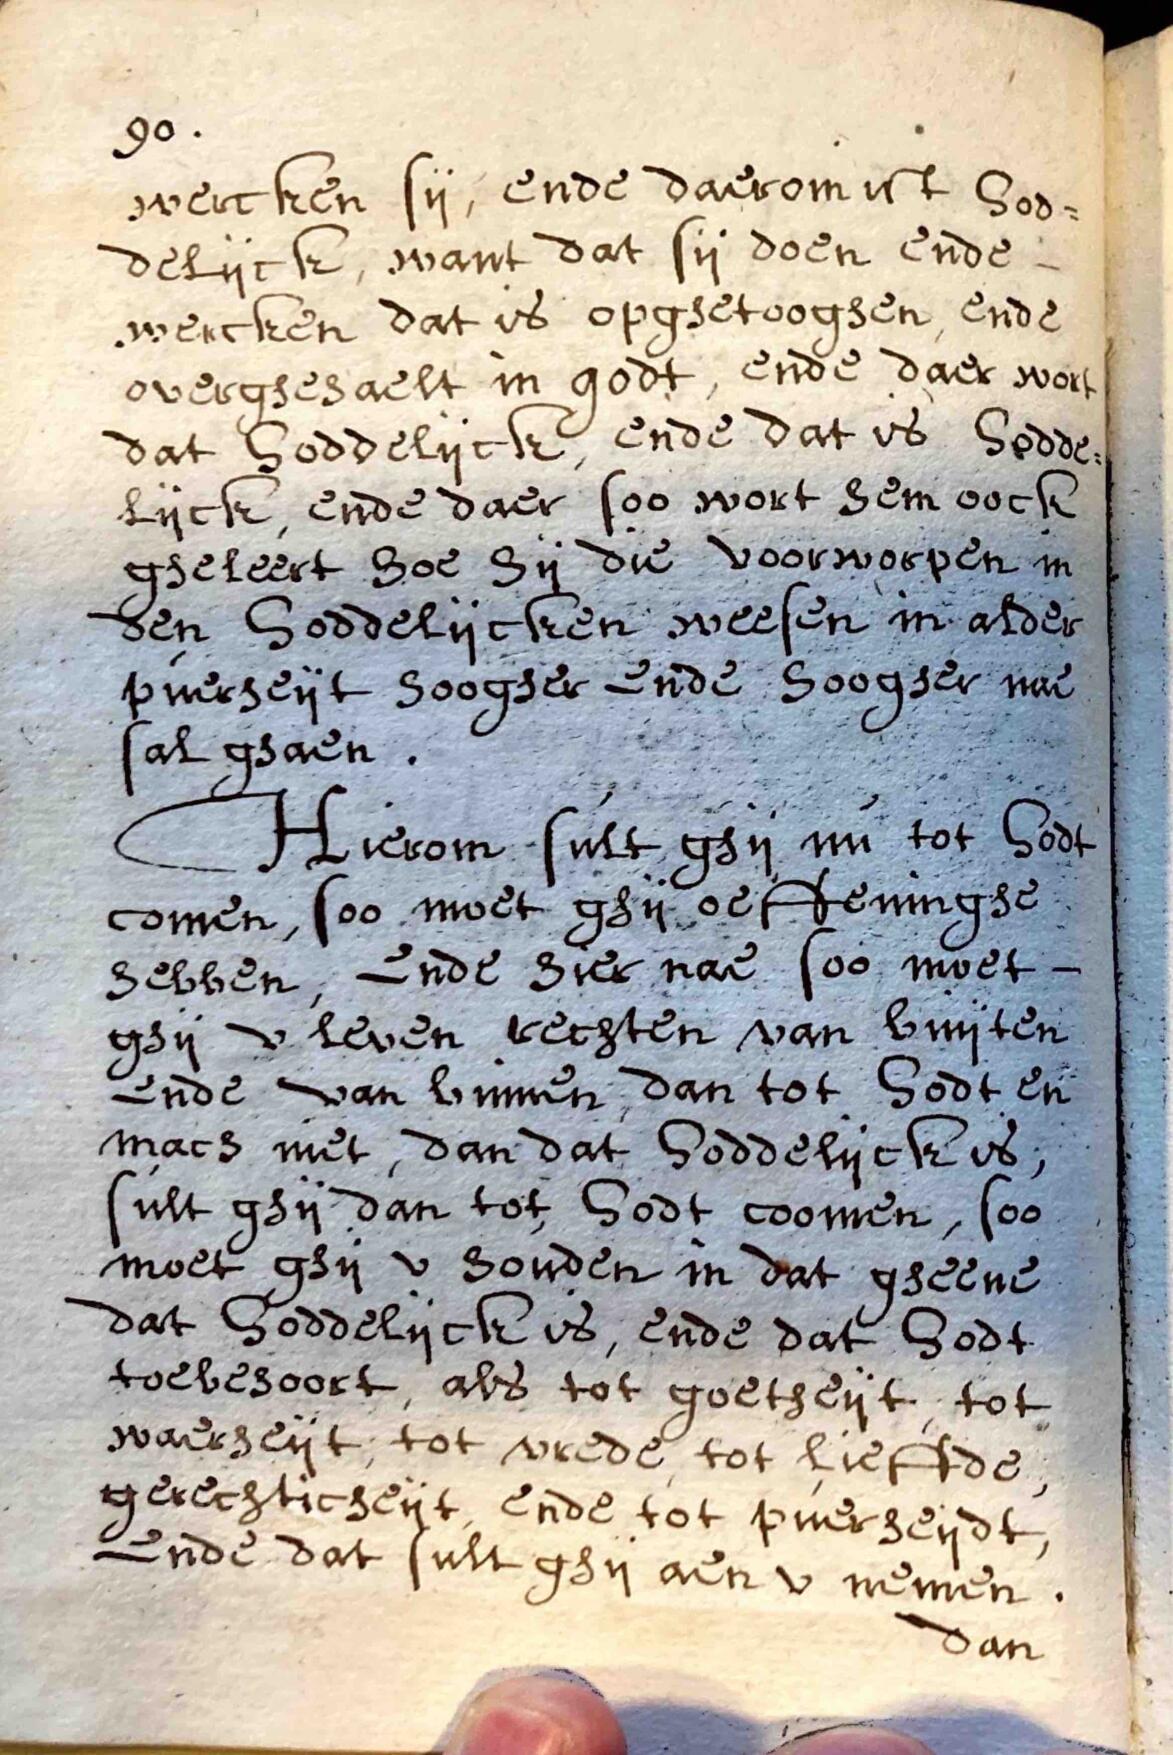 90.
wercken sij, ende daerom ist God=
delijck, want dat sij doen ende –
wercken dat is opghetooghen, ende
overghehaelt in godt, ende daer wort
dat Goddelijck, ende dat is Godde=
lijck, ende daer soo wort hem oock
gheleert hoe hij die voorworpen in
den Goddelijcken weesen in alder
puerheijt hoogher ende hoogher nae
sal ghaen.
Hierom sult ghij nu tot Godt
comen, soo moet ghij oeffeninghe
hebben, Ende hier nae soo moet –
ghij v leven rechten van buijten
Ende van binnen, dan tot Godt en
mach niet, dan dat Goddelijck is,
sult ghij dan tot Godt coomen, soo
moet ghij v houden in dat gheene
dat Goddelijck is, ende dat Godt
toebehoort, als tot goetheijt, tot
waerheijt, tot vrede, tot lieffde,
gerechticheijt, ende tot puerheijdt,
Ende dat sult ghij aen v nemen.
dan